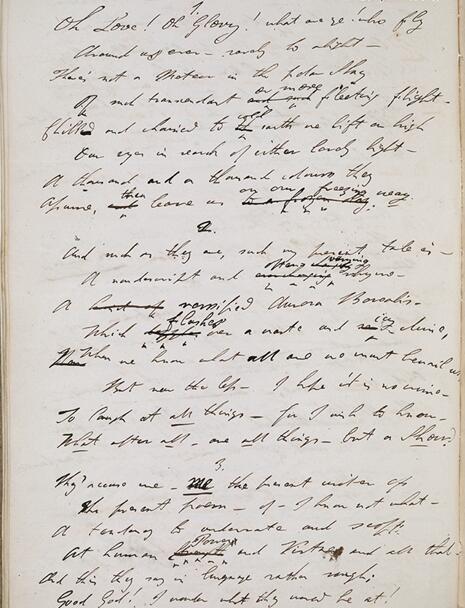 1.
Oh Love! Oh Glory! what are ye! who fly
Around us ever — rarely to alight —
There's not a Meteor in the polar Sky
Of such transcendant and such or more fleeting flight —
Chill and chained to cold earth we lift on high
Our eyes in search of either lovely light —
A thousand and a thousand colours they
Assume, then leave us on our freezing way.
2.
And such as they are, such my present tale is —
A nondescript and ever varying rhyme —
A versified Aurora Borealis —
Which flashes over a waste and icy clime,
When we know what all are we must bewail us,
But ne'er the less — I hope it is no crime —
To laugh at all things — for I wish to know —
What after all — are all things — but a Show?
3.
They accuse me — Me the present writer of
The present poem — of — I know not what —
A tendency to underrate and scoff
At human Power and Virtue and all that —
And this they say in language rather rough;
Good God! I wonder what they would be at!